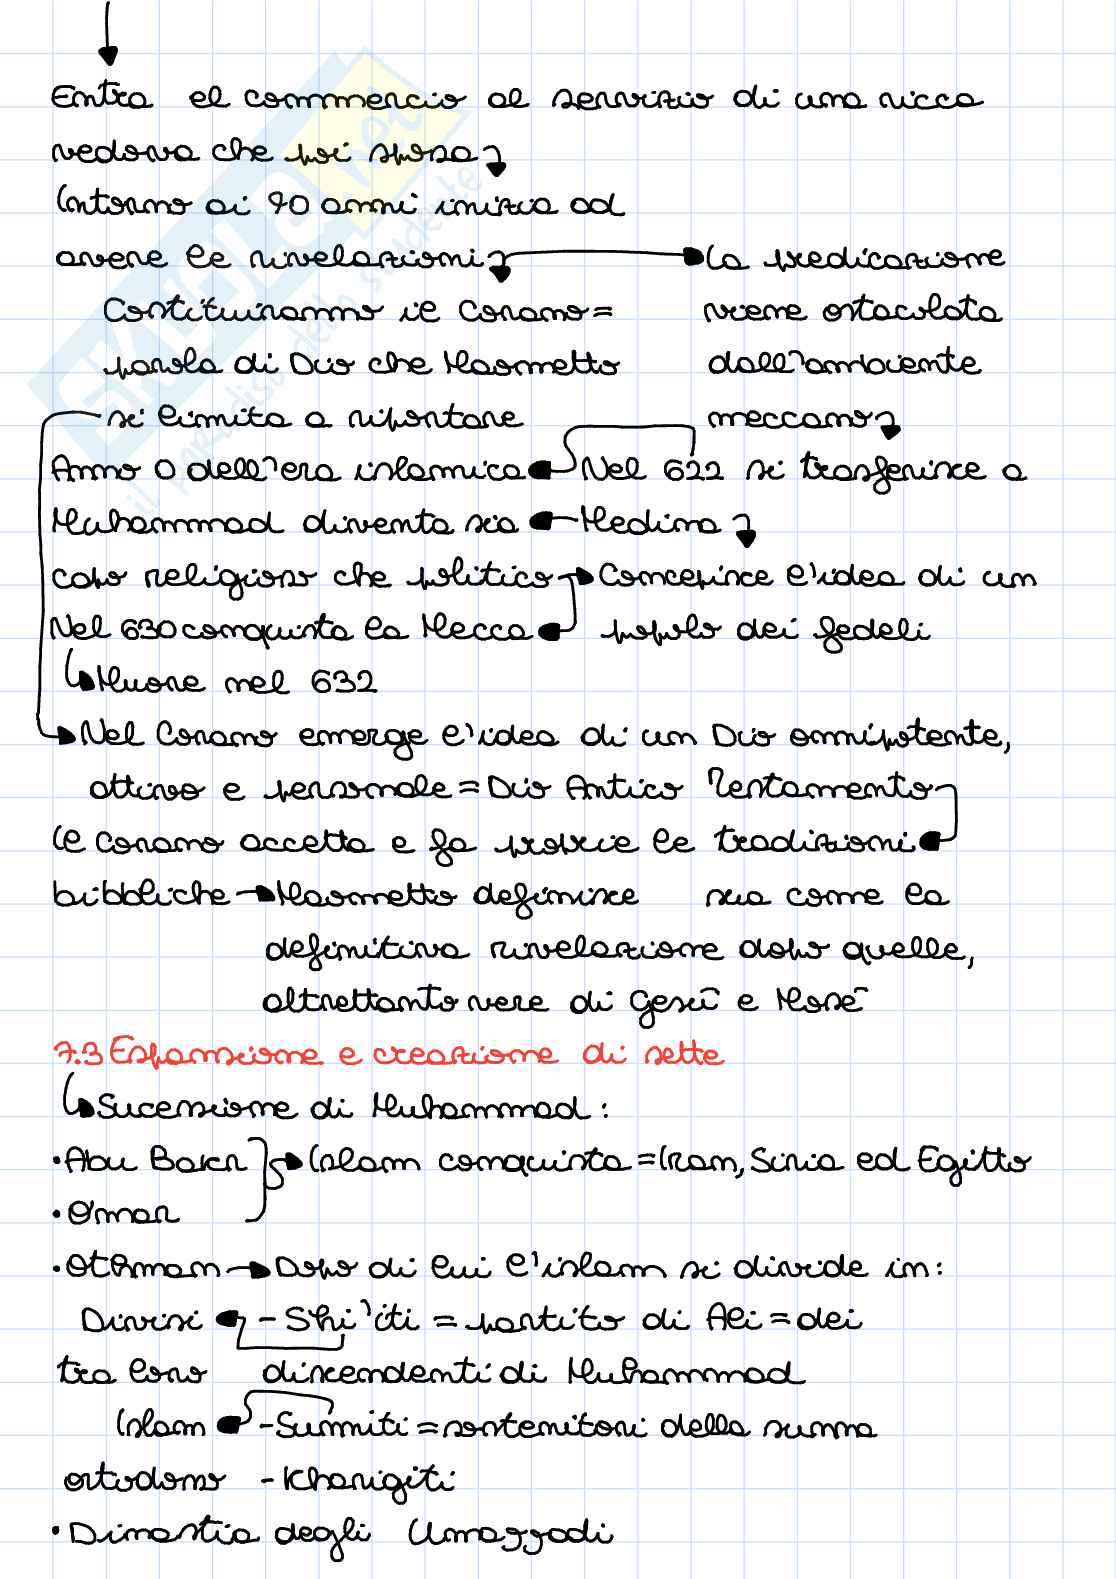 Entra el commercio al servizio di una ricca
vedova che poi sposa
Intorno ai 40 anni inizia ad
avere le rivelazioni
La predicazione
Costituiranno il Corano =
viene ostacolata
parola di Dio che Maometto
dall'ambiente
si limita a riportare
meccano
Anno 0 dell'era islamica
Nel 622 si trasferisce a
Muhammad diventa sia
Medina
capo religioso che politico
Concepisce l'idea di un
Nel 630 conquista la Mecca
popolo dei fedeli
Muore nel 632
Nel Corano emerge l'idea di un Dio onnipotente,
attivo e personale = Dio Antico Testamento
Il Corano accetta e fa proprie le tradizioni
bibbliche Maometto definisce sua come la
definitiva rivelazione dopo quelle,
altrettanto vere di Gesù e Mosè
7.3 Espansione e creazione di sette
Sucessione di Muhammad:
• Abu Bakr
Islam conquista = Iran, Siria ed Egitto
• Omar
• Othman Dopo di lui l'islam si divide in:
Divisi - Shi'iti = partito di Ali = dei
tra loro discendenti di Muhammad
Islam - Sunniti = sostenitori della sunna
ortodosso - Kharigiti
• Dinastia degli Umayyadi
SKUOLA.net
il paradiso dello studente